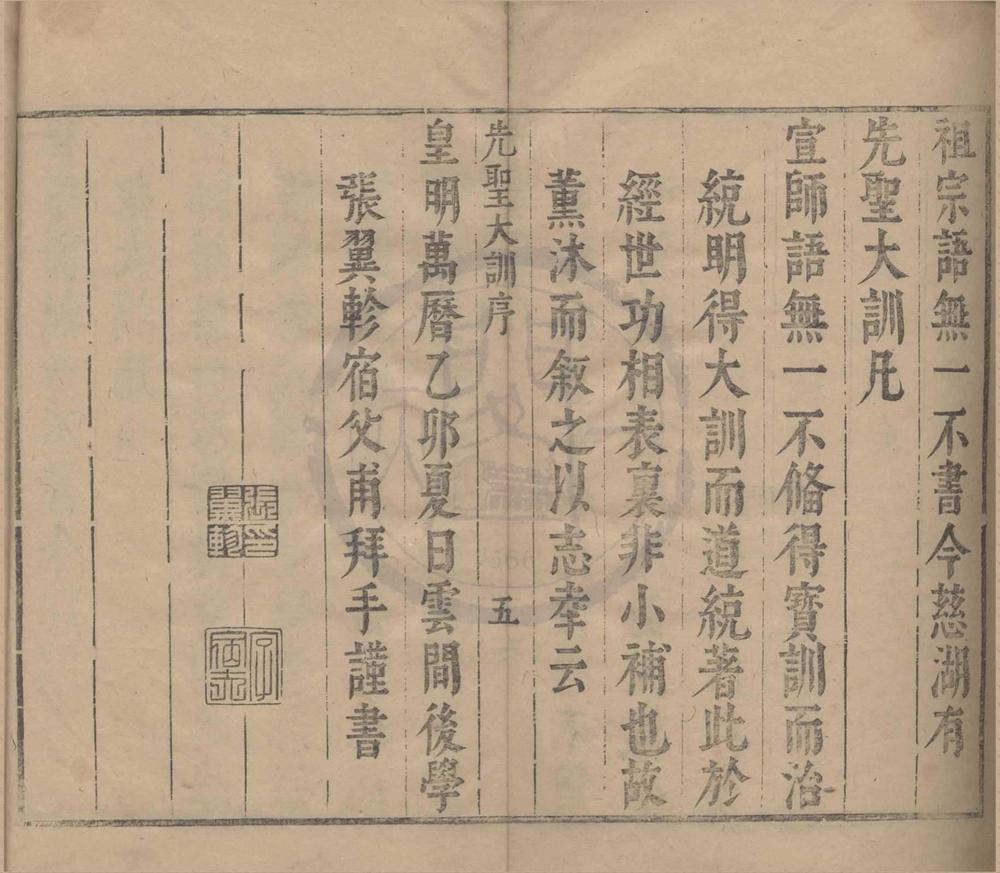 祖宗語無一不書今慈湖有
先聖大訓凡
宣師語無一不俻得寶訓而治
統明得大訓而道統著此於
經世功相表裏非小補也故
薰沐而敘之以志幸云
先聖大訓序 五
皇明萬曆乙卯夏日雲間後學
張翼軫宿父甫拜手謹書
張翼軫印